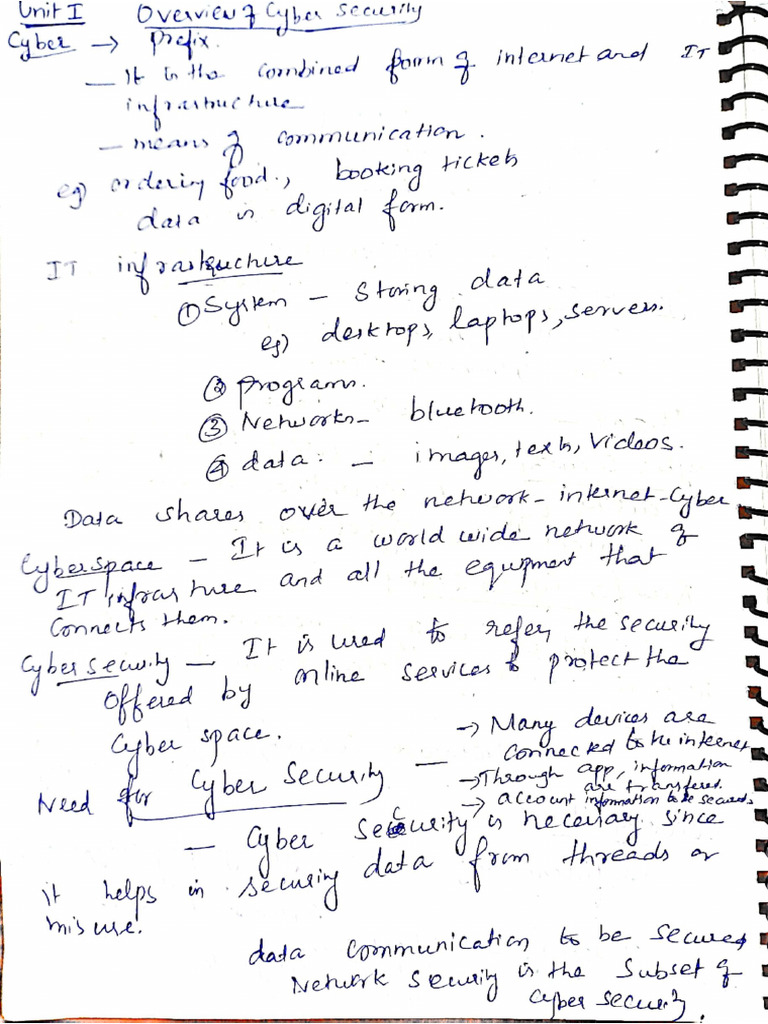 Unit I Overview of Cyber Security
Cyber → Prefix.
— It is the combined form of internet and IT
infrastructure
— means of communication.
eg) ordering food., booking tickets
data in digital form.
IT infrastructure
① System – storing data
eg) desktops, laptops, servers.
② programs.
③ Networks – bluetooth.
④ data. – images, texts, videos.
Data shares over the network – internet – Cyber
Cyber space – It is a world wide network of
IT infrastructure and all the equipment that
connects them.
Cyber security – It is used to refer, the security
offered by online services to protect the
Cyber space.
→ Many devices are
connected to the internet
Need for Cyber Security — → Through app, information
are transferred.
→ account information to be secured
— Cyber Security is necessary since
it helps in securing data from threads or
misuse.
data communication to be secured
Network security is the subset of
Cyber security.